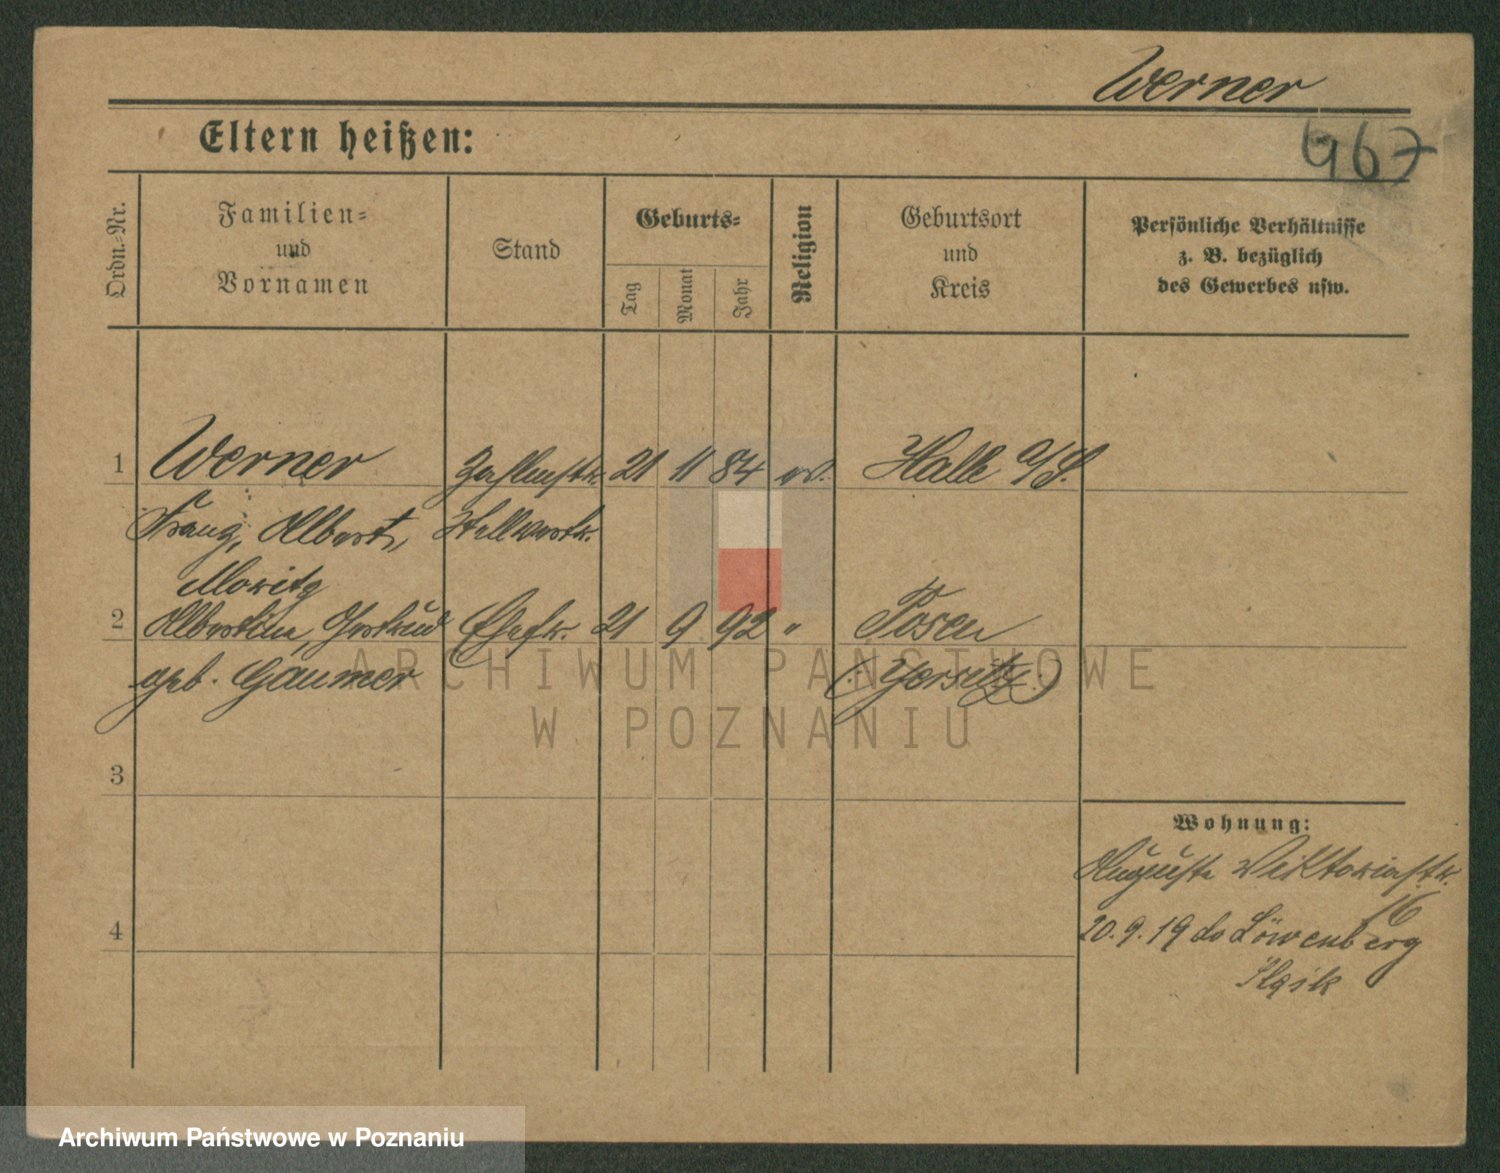 Werner
Eltern heißen:
467
Ordn.-Nr.
Familien-
und
Vornamen
Stand
Geburts-
Tag
Monat
Jahr
Religion
Geburtsort
und
Kreis
Persönliche Verhältnisse
z. B. bezüglich
des Gewerbes usw.
1 Werner Zahlmstr. 21 11 84 ev. Halle a/S.
Franz, Albert, Stellvertr.
Moritz
2 Albertine, Gertrud Ehefr. 21 9 92 " Posen
geb. Gaumer (: Jersitz :)
ARCHIWUM PAŃSTWOWE
W POZNANIU
3
Wohnung:
Auguste Viktoriastr.
16
4
20.9.19 do Löwenberg
Archiwum Państwowe w Poznaniu